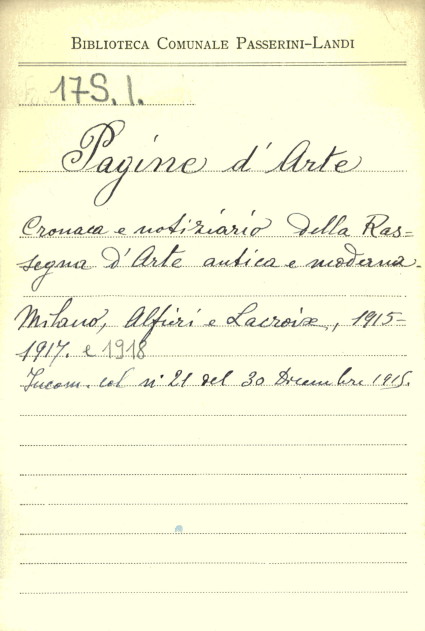 BIBLIOTECA COMUNALE PASSERINI–LANDI
17S. I.
Pagine d'Arte
Cronaca e notiziario della Ras=
segna d'Arte antica e moderna.
Milano, Alfieri e Lacroix, 1915-
1917. e 1918
Incom. col n. 21 del 30 Dicembre 1915.